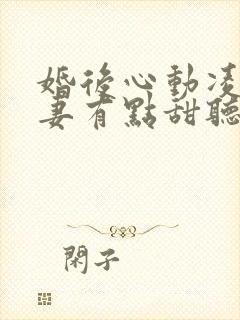 婚後心動凌
妻有點甜聽
閑子